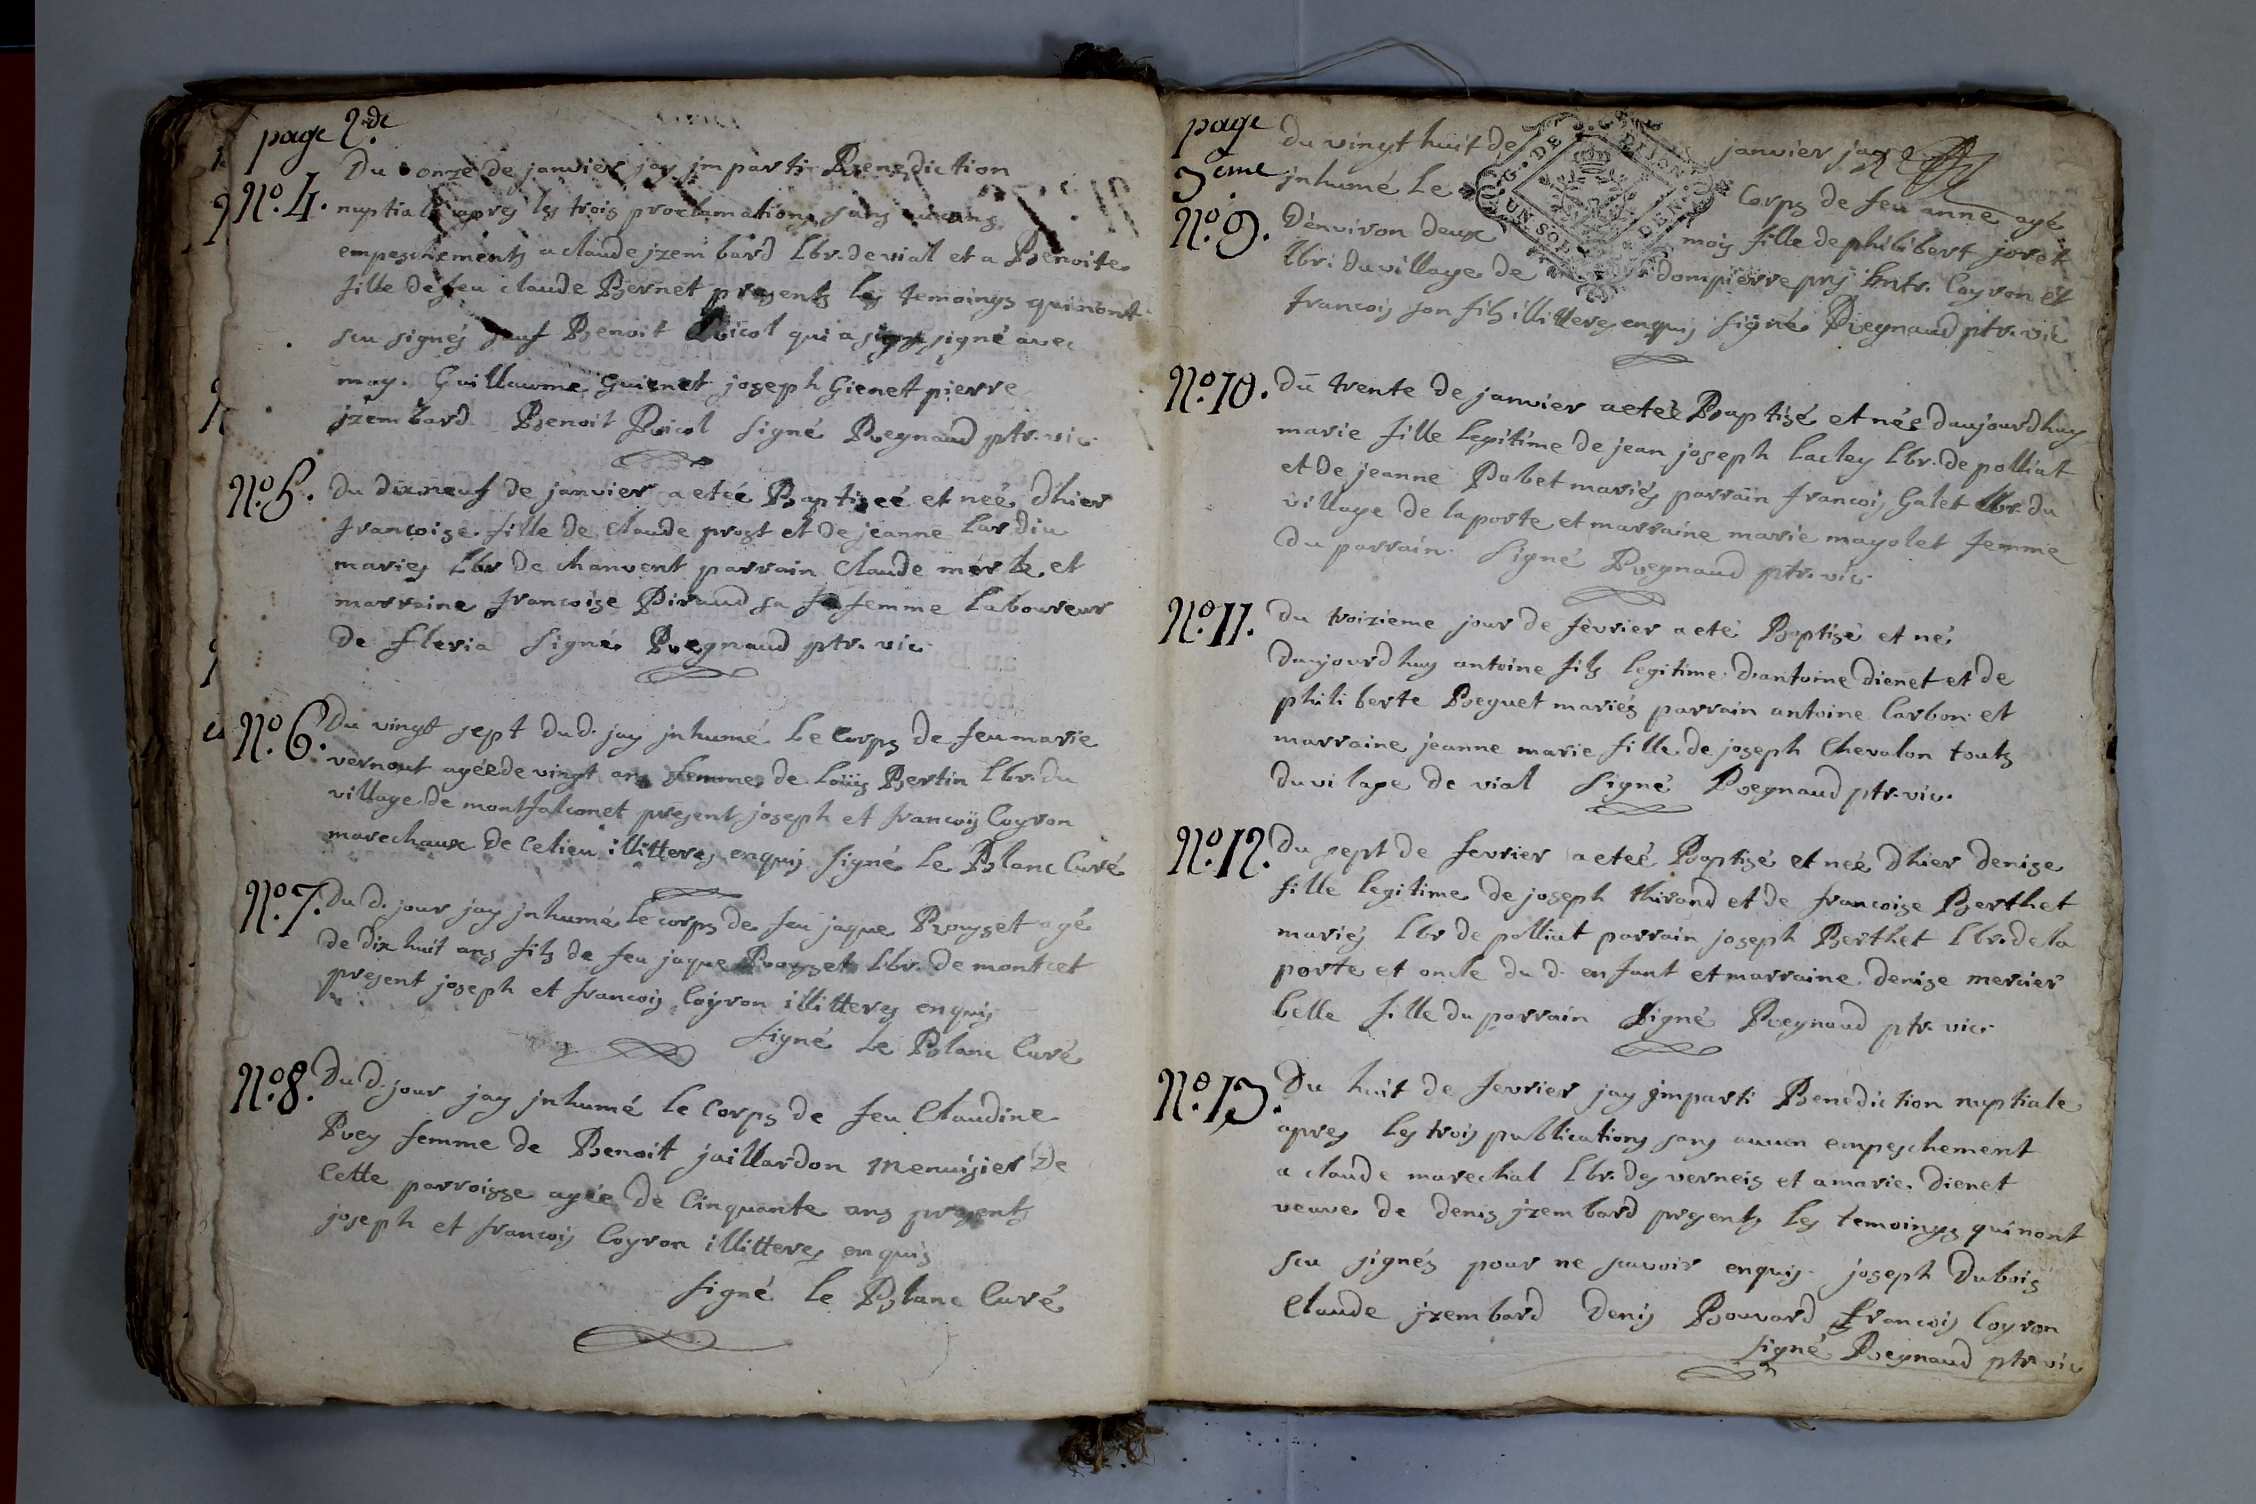 page 2.de
Du onze de janvier jay jmparti Benediction
No. 4. nuptiale apres les trois proclamations sans aucuns
empeschements a claude jzembard lbr. de vial et a Benoite
fille de feu claude Bernet presents les temoings qui nont
scu signés sauf Benoit Ricol qui a signé avec
moy. Guillaume Guienet joseph Gienet pierre
jzembard Benoit Ricol signé Regnaud ptr. vic.
No. 5. Du dix neuf de janvier a eteé Baptizeé et neé dhier
francoise fille de claude prost et de jeanne lardiu
mariez lbr de chanvent parrain claude merle et
marraine francoise Piraud sa femme laboureur
de fleria signé Regnaud ptr. vic.
No. 6. Du vingt sept dud. jay jnhumé le corps de feu marie
vernout ageéde vingt ans femme de loüis Bertin lbr. du
village de montfalconet present joseph et francois Coyron
marechaux de ce lieu illitteres enquis signé le Blanc Curé
No. 7. Du d. jour jay jnhumé le corps de feu jaque Rousset agé
de dix huit ans fils de feu jaque Rousset lbr. de montcet
present joseph et francois Coyron illitteres enquis
signé le Blanc Curé
No. 8. Du d. jour jay jnhumé le Corps de feu Claudine
Rey femme de Benoit jaillardon menuisier de
cette parroisse ageé de Cinquante ans presents
joseph et francois Coyron illitteres enquis
signé le Blanc Curé
page
3eme
du vingt huit de janvier jay
jnhumé le Corps de feu anne agé
No. 9. Denviron deux mois fille de philibert joret
lbr. du village de dompierre prs. Coyron et
francois son fils illitteres enquis signé Regnaud ptr. vic
G. DE DIJON
UN SOL DEN.
No. 10. Du trente de janvier a eteé Baptizé et née daujourdhuy
marie fille legitime de jean joseph lacley lbr. de polliat
et de jeanne Pobet mariés parrain francois Galet lbr. du
village de laporte et marraine marie mayolet femme
du parrain. signé Regnaud ptr. vic.
No. 11. du troizieme jour de fevrier a eté Baptizé et né
daujourdhuy antoine fils legitime d'antoine dienet et de
philiberte Beguet mariés parrain antoine Carbon et
marraine jeanne marie fille de joseph Chevalon touts
du vilage de vial signé Regnaud ptr. vic.
No. 12. Du sept de fevrier a eteé Baptizé et neé dhier denise
fille legitime de joseph thirand et de francoise Berthet
mariés lbr de polliat parrain joseph Berthet lbr. de la
porte et oncle du d. enfant et marraine denise mercier
belle fille du parrain signé Regnaud ptr. vic.
No. 13. Du huit de fevrier jay jmparti Benediction nuptiale
apres les trois publications sans aucun empeschement
a claude marechal lbr. des verneis et a marie dienet
veuve de denis jzembard presents les temoings qui nont
scu signés pour ne scavoir enquis. joseph Dubois
Claude jzembard Denis Bouvard francois Coyron
signé Regnaud ptr vic